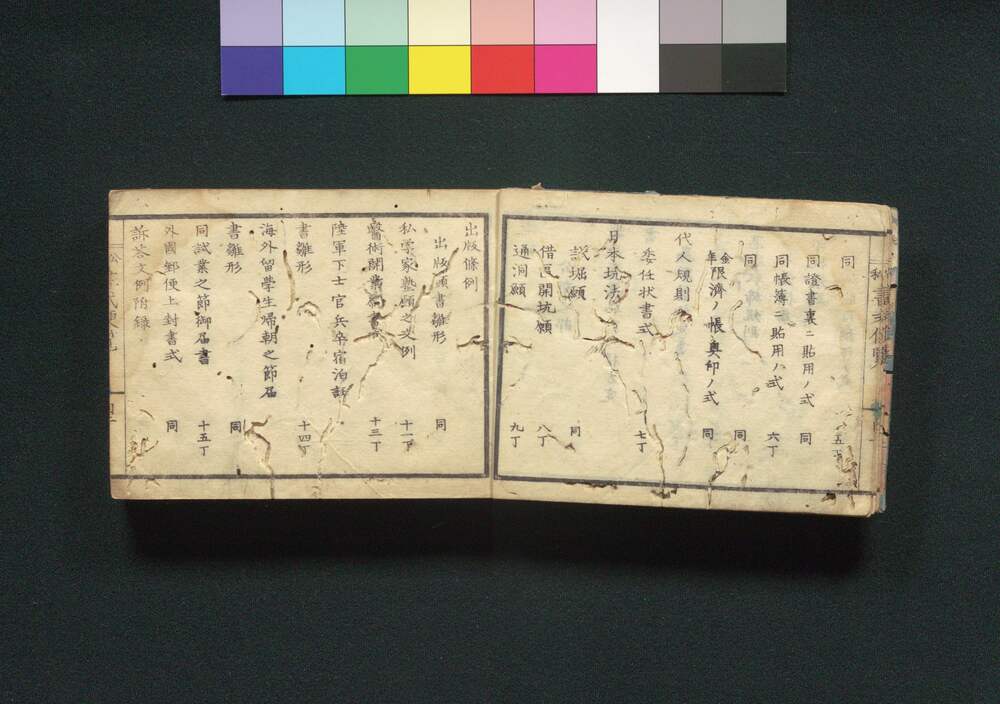 同 五丁
同證書裏ニ貼用ノ式 同
同帳簿ニ貼用ノ式 六丁
同 同
年金限濟ノ帳奥印ノ式 同
代人規則
委任状書式 七丁
日本坑法
試堀願 同
借區開坑願 八丁
通洞願 九丁
出版條例
出版願書雛形 同
私學家塾願之文例 十一丁
醫術開業願書式 十三丁
陸軍下士官兵卒宿泊證
書雛形 十四丁
海外留學生歸朝之節届
書雛形 同
同試業之節御届書 十五丁
外國郵便上封書式 同
訴答文例附録